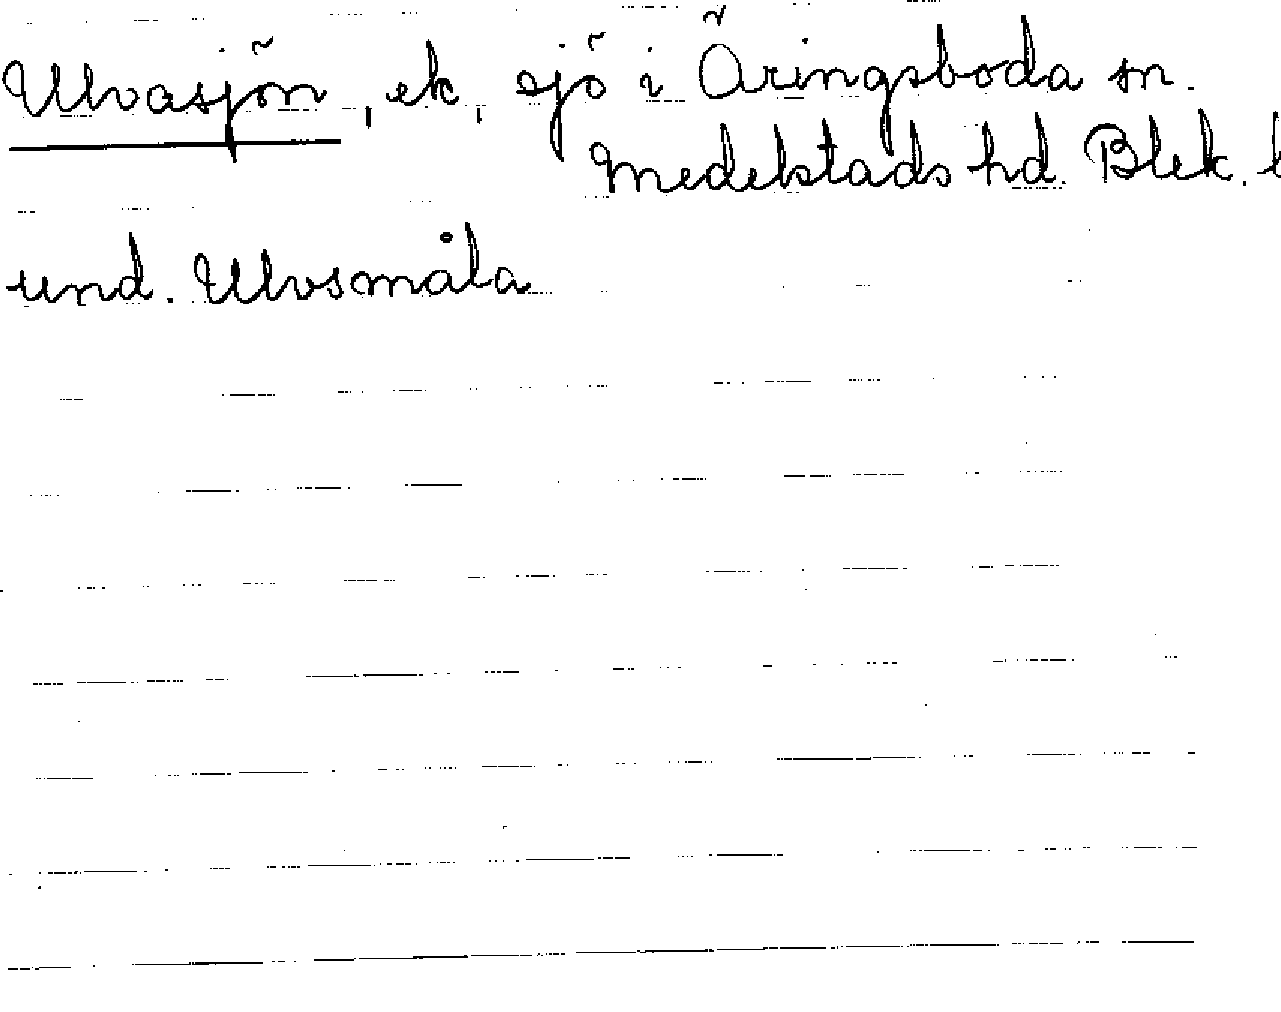 Ulvasjön, ek, sjö i Öringsboda sn.
Medelstads hd. Blek. l
und. Ulvsmåla